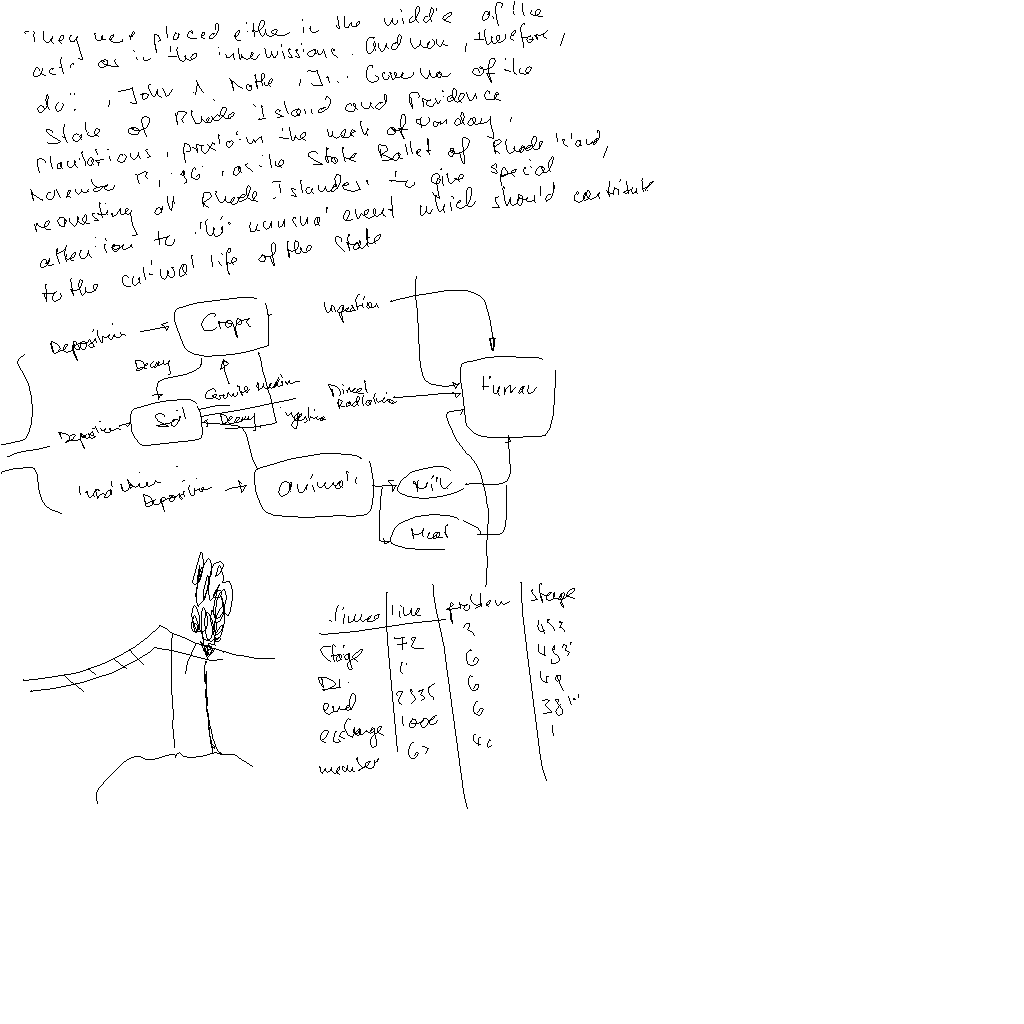 They were placed either in the middle of the
acts as in the intermissions. And now, therefore,
do I, John A. Notte, Jr. Governor of the
State of Rhode Island and Providence
Plantations, proclaim the week of Monday,
November 13, as the State Ballet of Rhode Island,
requesting all Rhode Islanders to give special
attention to this unusual event which should contribute
to the cultural life of the State
Ingestion
Deposition Crops
Decay
Human
Direct
Radiation
Deposition Soil Decay Ingestion
Inhalation
Deposition Animals Milk
Meat
time problem stage
72 3
6
end 2335 6 49
exchange 1000 6
member